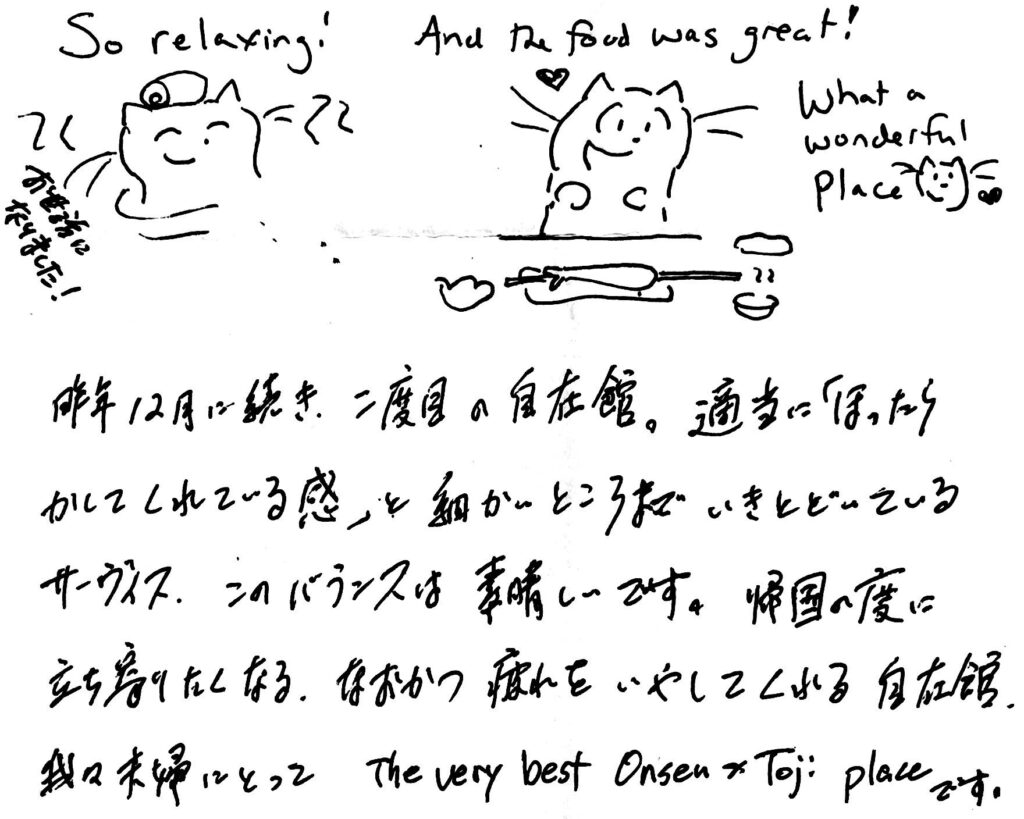 So relaxing!
And the food was great!
What a
wonderful
place
お世話に
なりました!
昨年12月に続き、二度目の自在館。適当に「ほったら
かしてくれている感」と細かいところまでいきとどいている
サーヴィス、このバランスは素晴しいです。帰国の度に
立ち寄りたくなる、なおかつ疲れをいやしてくれる自在館、
我々夫婦にとって The very best Onsen & Toji place です。